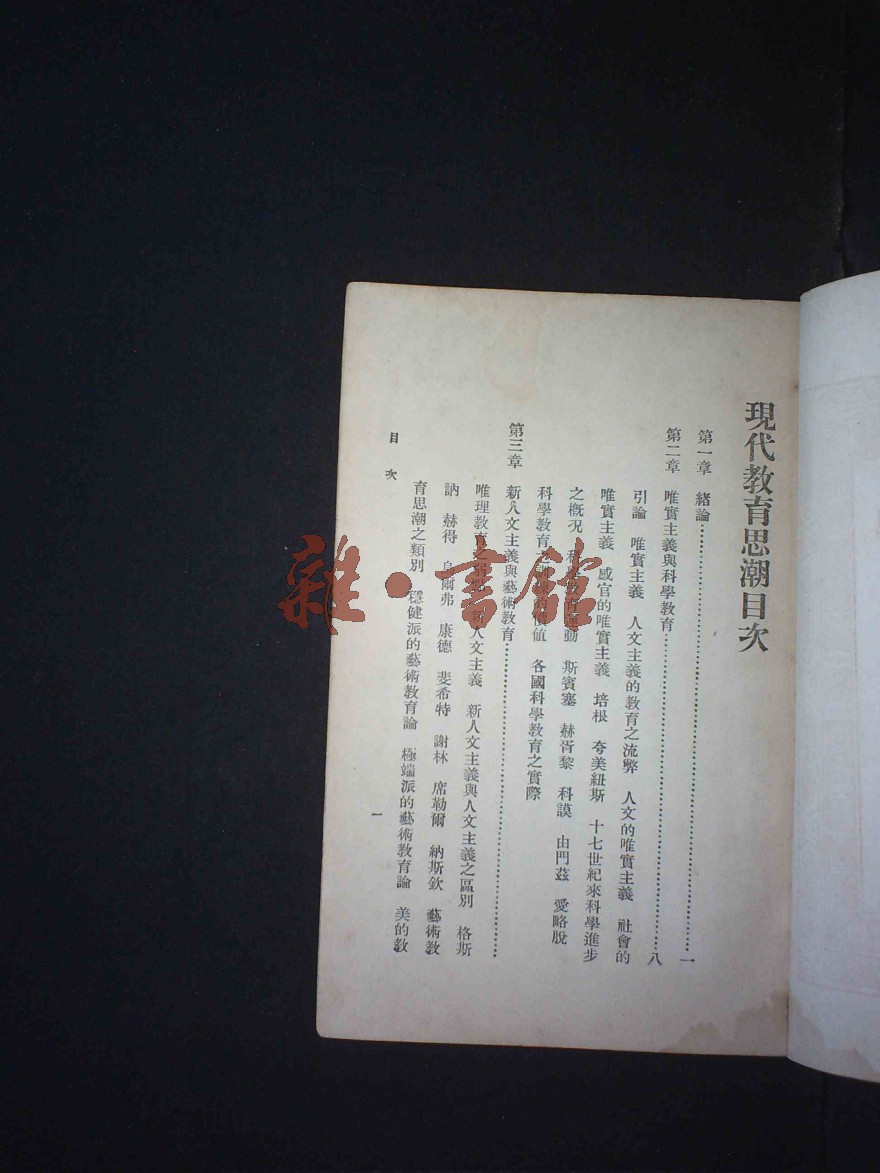 現代教育思潮目次
第一章 緒論……一
第二章 唯實主義與科學教育……八
引論 唯實主義 人文主義的教育之流弊 人文的唯實主義 社會的
唯實主義 感官的唯實主義 培根 夸美紐斯 十七世紀來科學進步
之概況 科學教育運動 斯賓塞 赫胥黎 科謨 由門茲 愛略脫
科學教育之訓練的價值 各國科學教育之實際
第三章 新人文主義與藝術教育……
唯理教育之弱點 新人文主義 新人文主義與人文主義之區別 格斯
訥 赫得 烏爾弗 康德 斐希特 謝林 席勒爾 納斯欽 藝術教
育思潮之類別 穩健派的藝術教育論 極端派的藝術教育論 美的教
目次
一
雜·書館